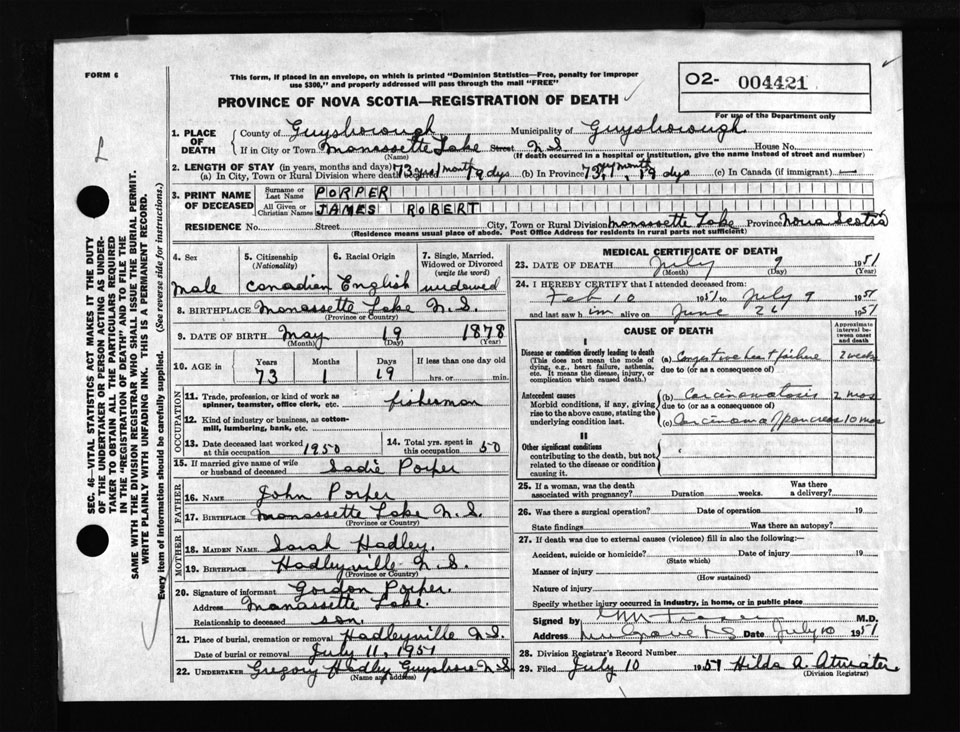 FORM 6
This form, if placed in an envelope, on which is printed "Dominion Statistics—Free, penalty for improper
use $300," and properly addressed will pass through the mail "FREE"
O2- 004421
For use of the Department only
PROVINCE OF NOVA SCOTIA—REGISTRATION OF DEATH
1. PLACE OF DEATH
County of Guysborough Municipality of Guysborough
If in City or Town Manassette Lake Street N.S. House No.
(Name) (If death occurred in a hospital or institution, give the name instead of street and number)
2. LENGTH OF STAY (in years, months and days)
(a) In City, Town or Rural Division where death occurred 73 yrs 1 month 19 dys (b) In Province 73 yrs, 1 month, 19 dys (c) In Canada (if immigrant) —
3. PRINT NAME OF DECEASED
Surname or Last Name PORPER
All Given or Christian Names JAMES ROBERT
RESIDENCE No. Street City, Town or Rural Division Manassette Lake Province Nova Scotia
(Residence means usual place of abode. Post Office Address for residents in rural parts not sufficient)
4. Sex Male
5. Citizenship (Nationality) Canadian
6. Racial Origin English
7. Single, Married, Widowed or Divorced (write the word) widowed
8. BIRTHPLACE Manassette Lake N.S.
(Province or Country)
9. DATE OF BIRTH May 19 1878
(Month) (Day) (Year)
10. AGE in Years 73 Months 1 Days 19 If less than one day old hrs. or min.
OCCUPATION
11. Trade, profession, or kind of work as spinner, teamster, office clerk, etc. fisherman
12. Kind of industry or business, as cotton-mill, lumbering, bank, etc.
13. Date deceased last worked at this occupation 1950
14. Total yrs. spent in this occupation 50
15. If married give name of wife or husband of deceased Sadie Porper
FATHER
16. NAME John Porper
17. BIRTHPLACE Manassette Lake N.S.
(Province or Country)
MOTHER
18. MAIDEN NAME Sarah Hadley.
19. BIRTHPLACE Hadleyville N.S.
(Province or Country)
20. Signature of informant Gordon Porper.
Address Manassette Lake.
Relationship to deceased son.
21. Place of burial, cremation or removal Hadleyville N.S.
Date of burial or removal July 11, 1951
22. UNDERTAKER Gregory Hadley Guysboro N.S.
(Name and address)
MEDICAL CERTIFICATE OF DEATH
23. DATE OF DEATH July 9 1951
(Month) (Day) (Year)
24. I HEREBY CERTIFY that I attended deceased from:
Feb 10 1951 to July 9 1951
and last saw him alive on June 26 1951
CAUSE OF DEATH
Approximate interval between onset and death
I
Disease or condition directly leading to death
(This does not mean the mode of dying, e.g., heart failure, asthenia, etc. It means the disease, injury, or complication which caused death.)
(a) Congestive heart failure 2 weeks
due to (or as a consequence of)
Antecedent causes
Morbid conditions, if any, giving rise to the above cause, stating the underlying condition last.
(b) Carcinomatosis 2 mos
due to (or as a consequence of)
(c) Carcinoma of pancreas 10 mos
II
Other significant conditions
contributing to the death, but not related to the disease or condition causing it.
25. If a woman, was the death associated with pregnancy? Duration weeks. Was there a delivery?
26. Was there a surgical operation? Date of operation 19
State findings Was there an autopsy?
27. If death was due to external causes (violence) fill in also the following:—
Accident, suicide or homicide? Date of injury 19
(State which)
Manner of injury
(How sustained)
Nature of injury
Specify whether injury occurred in industry, in home, or in public place
Signed by M.D.
Address Mulgrave N.S. Date July 10 1951
28. Division Registrar's Record Number
29. Filed July 10 1951 Hilda A. Atwater
(Division Registrar)
SEC. 46—VITAL STATISTICS ACT MAKES IT THE DUTY
OF THE UNDERTAKER OR PERSON ACTING AS UNDER-
TAKER TO OBTAIN ALL THE PARTICULARS REQUIRED
IN THE "REGISTRATION OF DEATH" AND TO FILE THE
SAME WITH THE DIVISION REGISTRAR WHO SHALL ISSUE THE BURIAL PERMIT.
WRITE PLAINLY WITH UNFADING INK. THIS IS A PERMANENT RECORD.
Every item of information should be carefully supplied. (See reverse side for instructions.)